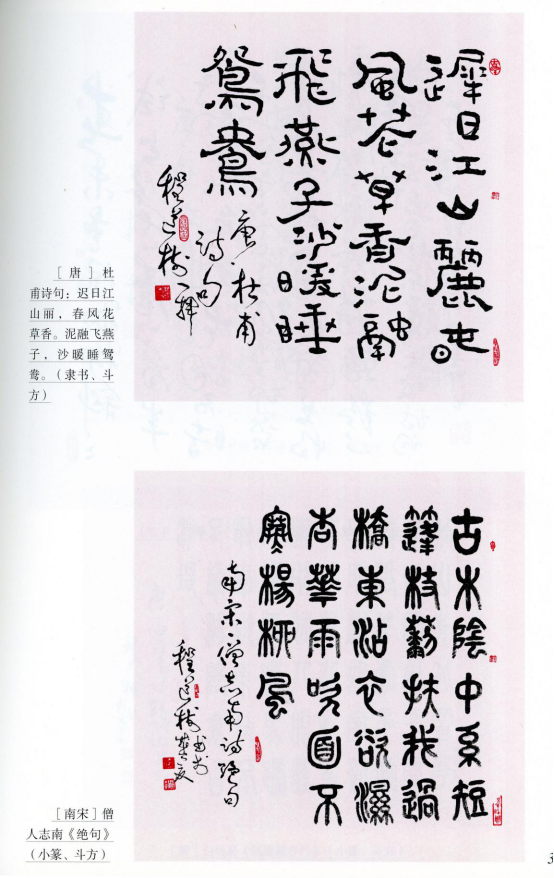 遲日江山麗旾
風花草香泥融
飛燕子沙暖睡
鴛鴦
唐·杜甫
诗句
［唐］杜
甫诗句：迟日江
山丽，春风花
草香。泥融飞燕
子，沙暖睡鸳
鸯。（隶书、斗
方）
古木陰中系短
篷杖藜扶我過
橋東沾衣欲濕
杏華雨吹面不
寒楊柳風
南宋·僧志南诗绝句
［南宋］僧
人志南《绝句》
（小篆、斗方）
3